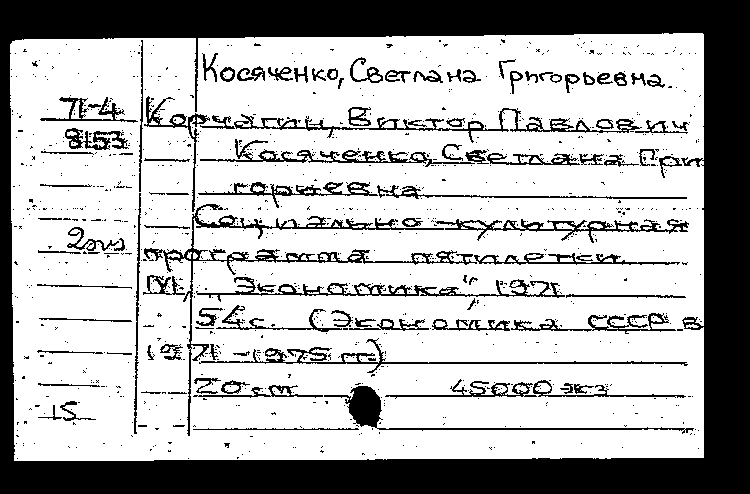 Косяченко, Светлана Григорьевна.
71-4 Корчагин, Виктор Павлович
8153 Косяченко, Светлана Гри
горьевна
Социально-культурная
2экз программа пятилетки.
М., "Экономика", 1971
54с. (Экономика СССР в
1971-1975 гг.)
20 см 45000 экз
15